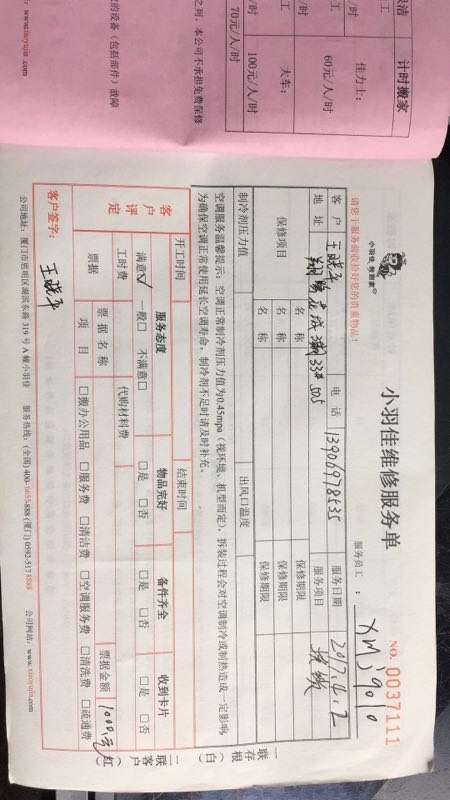 计时搬家
佳力士:
60元/人/时
大车:
100元/人/时
70元/人/时
之列,本公司不承担免费保修
的设备(包括部件)故障
小羽佳维修服务单
NO: 0037111
小羽佳 熊管家
请您于服务前收拾好您的贵重物品!
服务员工: XMJ9010
客户 王晓平 电话 13906978535 服务日期 2017.4.12
地址 33# 505 服务项目
保修项目 名称 保修期限
名称 保修期限
名称 保修期限
制冷剂压力值 出风口温度
空调服务温馨提示:空调正常制冷剂压力值为0.45mpa(视环境、机型而定),拆装过程会对空调制冷或制热造成一定影响
为确保空调正常使用延长空调寿命,制冷剂不足时请及时补充。
开工时间 结束时间
客户评定 服务态度 物品完好 备件齐全 收到卡片
满意☑ 一般□ 不满意□ □是 □否 □是 □否 □是 □否
工时费 代购材料费
票据 票据名称 票据金额 1000元
项目 □搬办公用品 □服务费 □清洁费 □空调服务费 □清洗费 □疏通费
客户签字: 王晓平
一联存根(白)
二联客户(红)
公司地址:厦门市思明区湖滨东路319号A幢小羽佳 服务热线:(全国)400-1655-888 (厦门)0592-5178888 公司网站:www.xiaoyujia.com